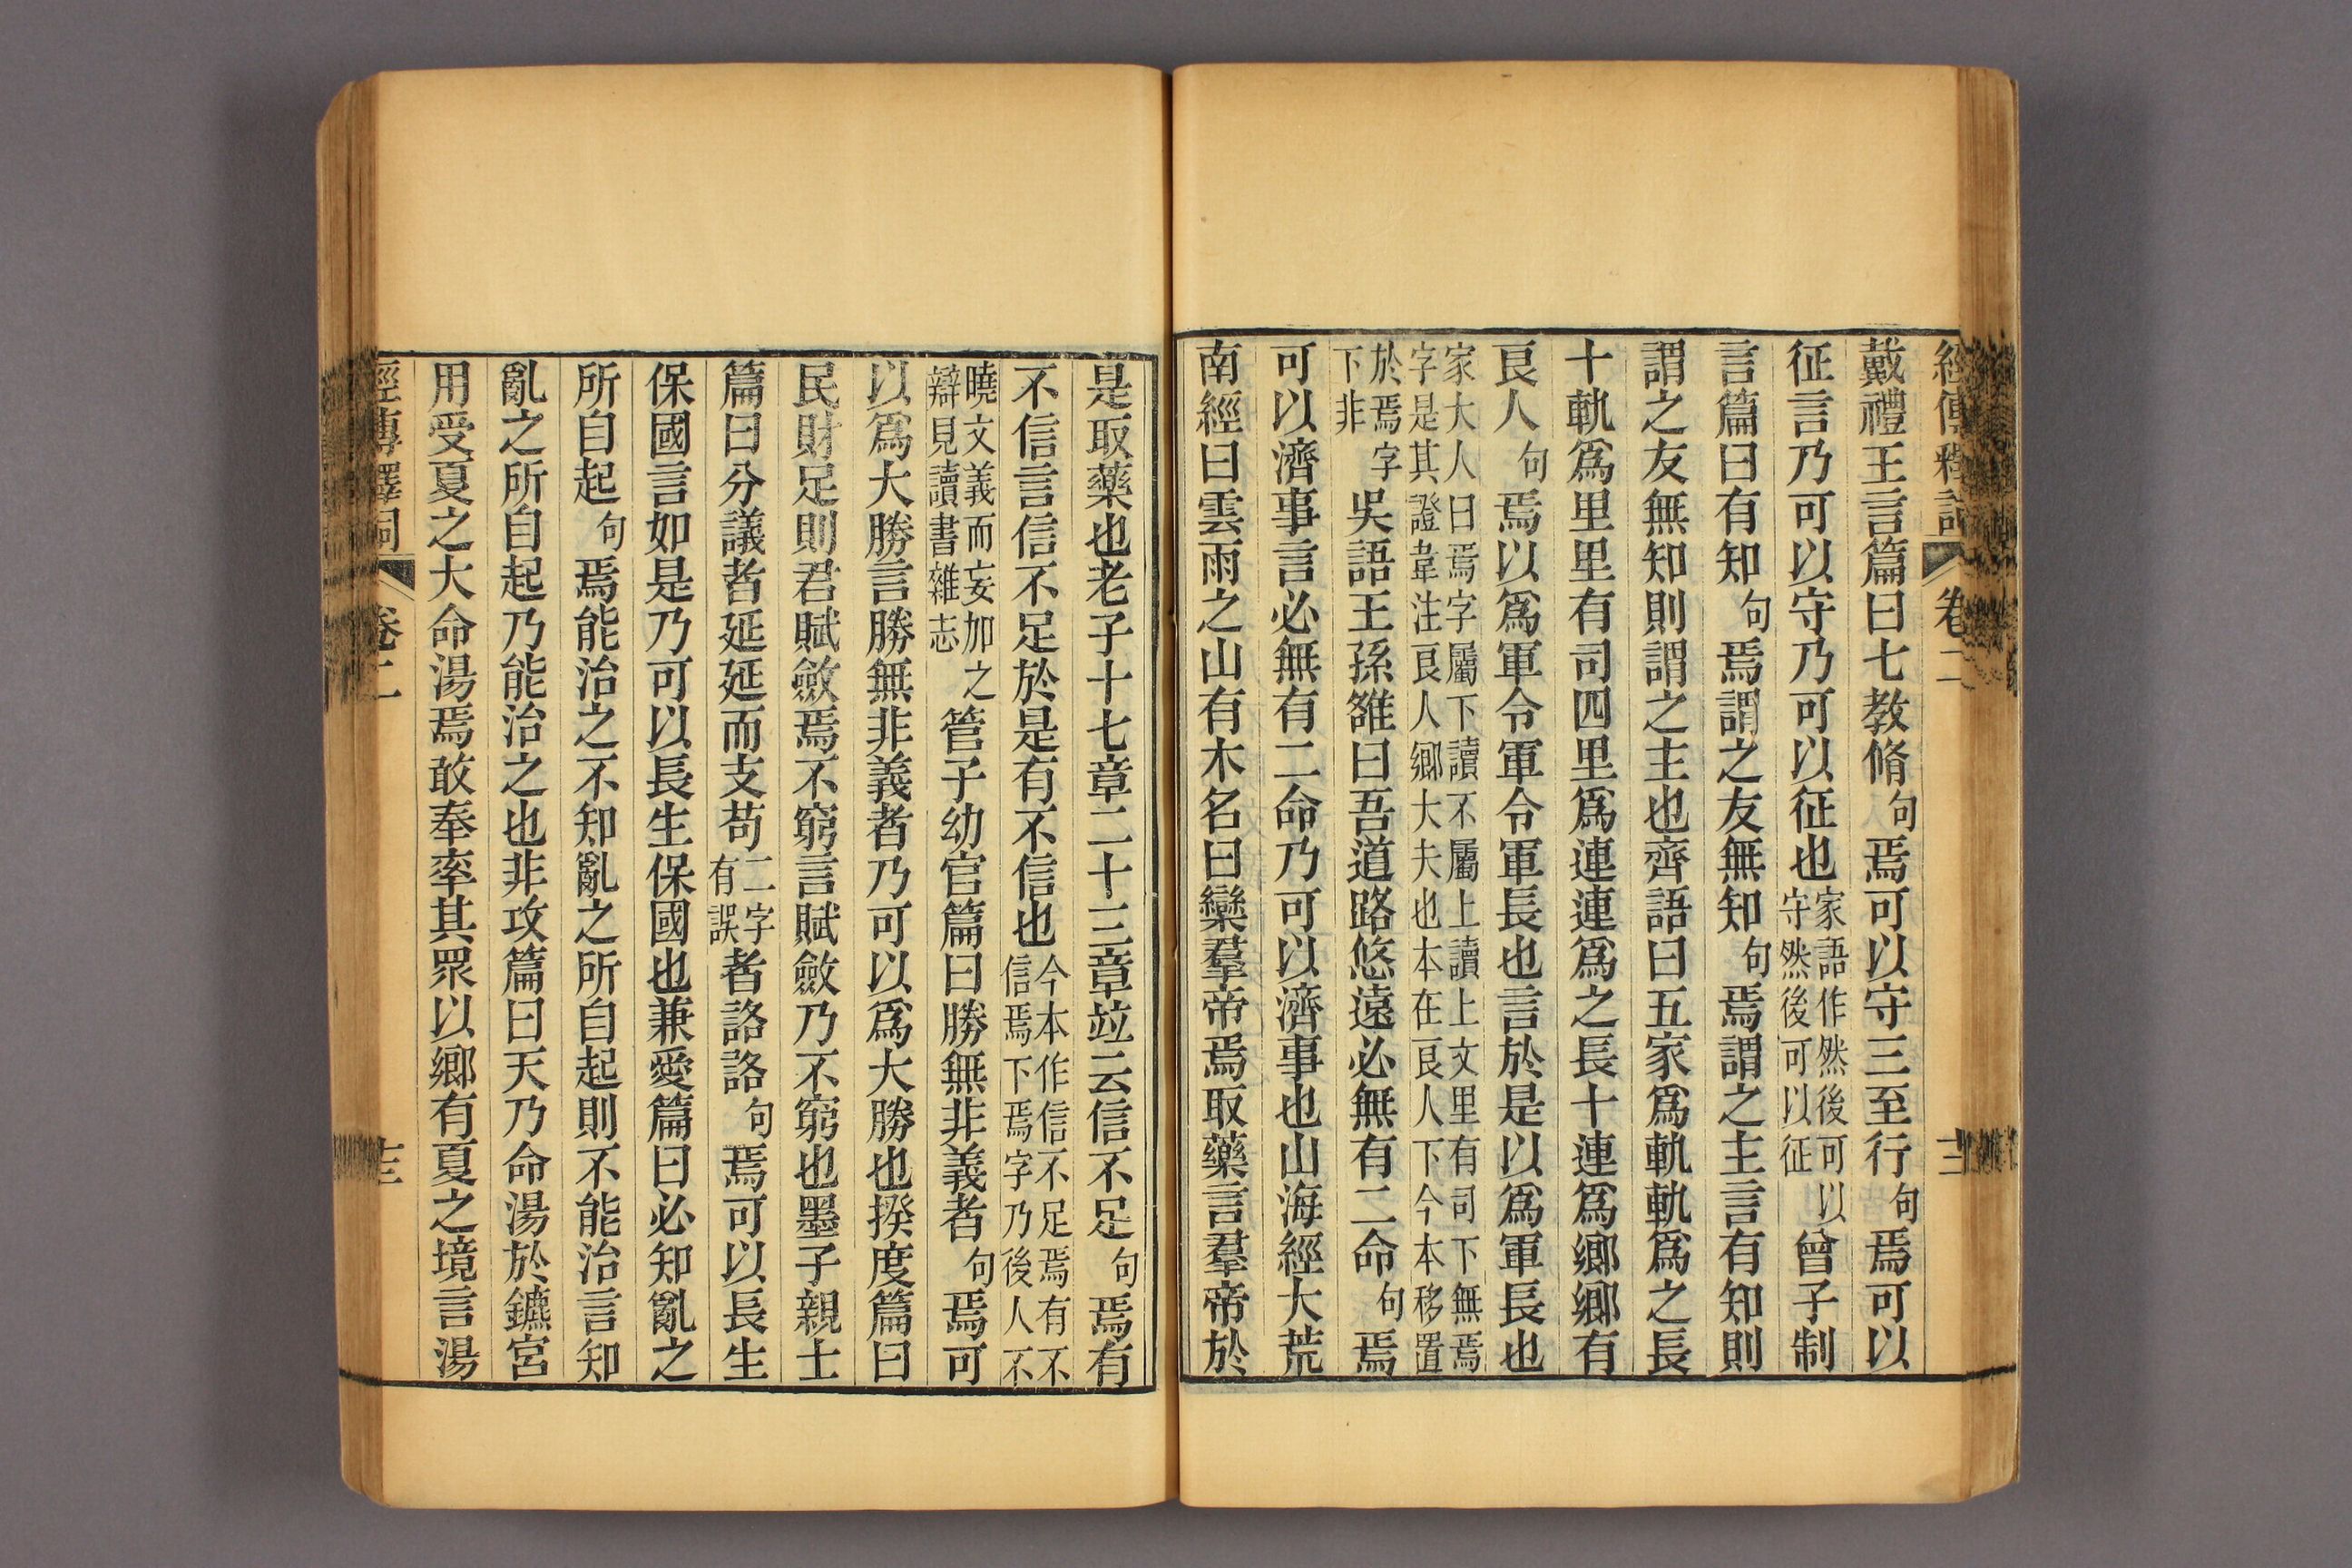 經傳釋詞 卷二 十二
戴禮王言篇曰七教脩句焉可以守三至行句焉可以
征言乃可以守乃可以征也家語作然後可以守然後可以征曾子制
言篇曰有知句焉謂之友無知句焉謂之主言有知則
謂之友無知則謂之主也齊語曰五家爲軌軌爲之長
十軌爲里里有司四里爲連連爲之長十連爲鄉鄉有
良人句焉以爲軍令軍令軍長也言於是以爲軍長也
家大人曰焉字屬下讀不屬上讀上文里有司下無焉字是其證韋注良人鄉大夫也本在良人下今本移置
於焉字下非吳語王孫雒曰吾道路悠遠必無有二命句焉
可以濟事言必無有二命乃可以濟事也山海經大荒
南經曰雲雨之山有木名曰欒羣帝焉取藥言羣帝於
是取藥也老子十七章二十三章竝云信不足句焉有
不信言信不足於是有不信也今本作信不足焉有不信焉下焉字乃後人不
曉文義而妄加之辯見讀書雜志管子幼官篇曰勝無非義者句焉可
以爲大勝言勝無非義者乃可以爲大勝也揆度篇曰
民財足則君賦斂焉不窮言賦斂乃不窮也墨子親士
篇曰分議者延延而支苟二字有誤者詻詻句焉可以長生
保國言如是乃可以長生保國也兼愛篇曰必知亂之
所自起句焉能治之不知亂之所自起則不能治言知
亂之所自起乃能治之也非攻篇曰天乃命湯於鑣宮
用受夏之大命湯焉敢奉率其眾以鄉有夏之境言湯
經傳釋詞 卷二 十三